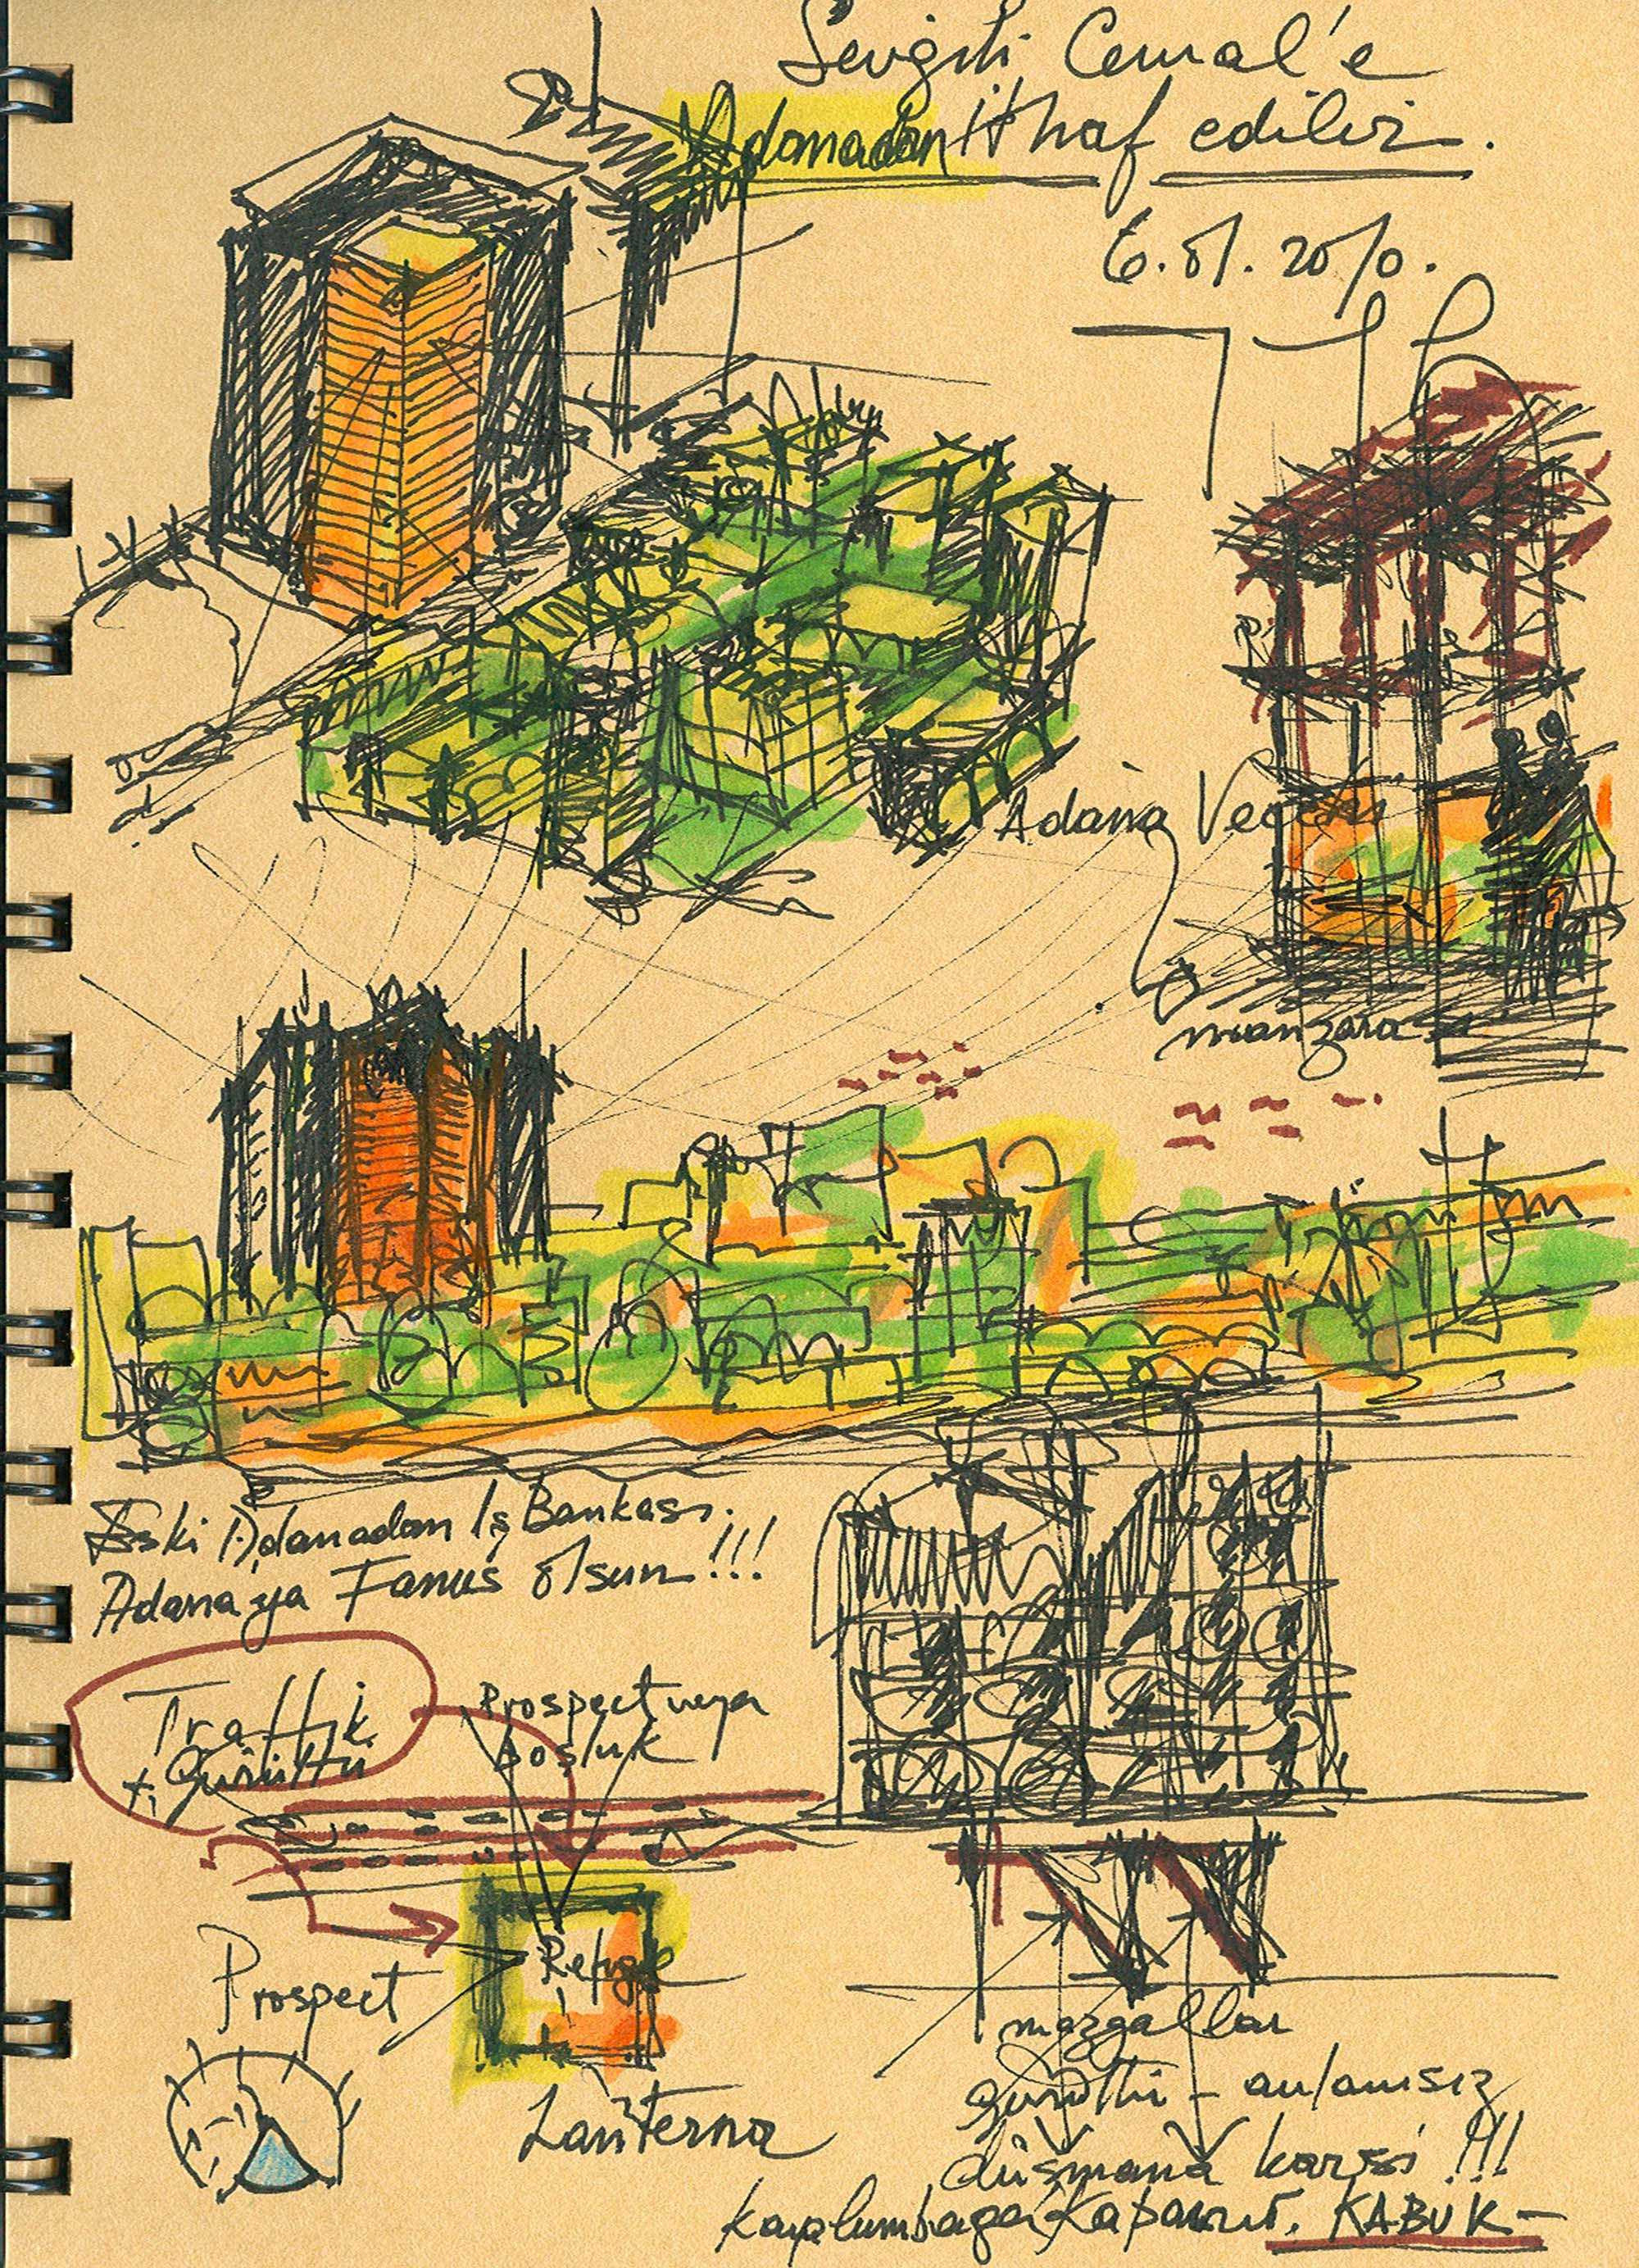 Sevgili Cemal'e
Adanadan ithaf edilir.
6.01.2010.
Adana
manzara
Eski Adanadan İş Bankası.
Adana'ya Fanus olsun!!!
Trafik
+ Gürültü
Prospect veya
Boşluk
Prospect
Refuge
Lanterna
mazgallar
gürültü - anlamsız
düşmana karşı !!!
kaplumbağa KABUK